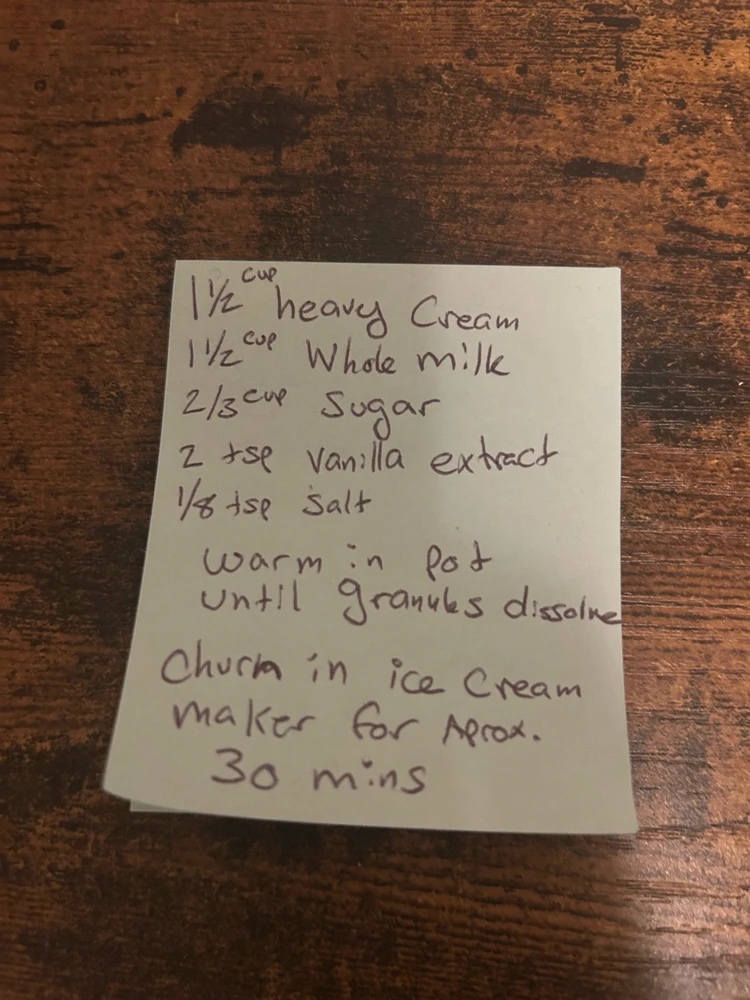 1 1/2 cup heavy Cream
1 1/2 cup Whole milk
2/3 cup Sugar
2 tsp vanilla extract
1/8 tsp salt
warm in pot
until granules dissolve
Churn in ice Cream
maker for Aprox.
30 mins